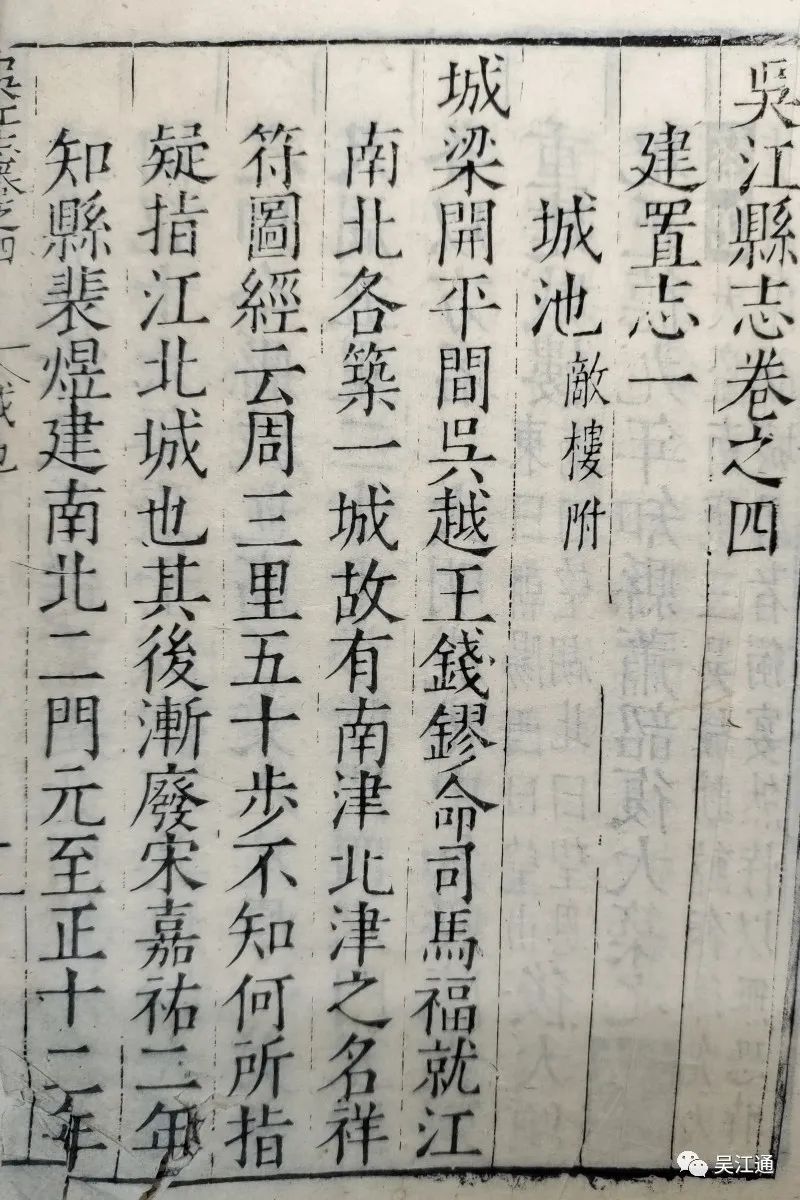 吳江縣志卷之四
建置志一
城池敵樓附
城梁開平間吳越王錢鏐命司馬福就江
南北各築一城故有南津北津之名祥
符圖經云周三里五十步不知何所指
疑指江北城也其後漸廢宋嘉祐二年
知縣裴煜建南北二門元至正十二年
吴江通